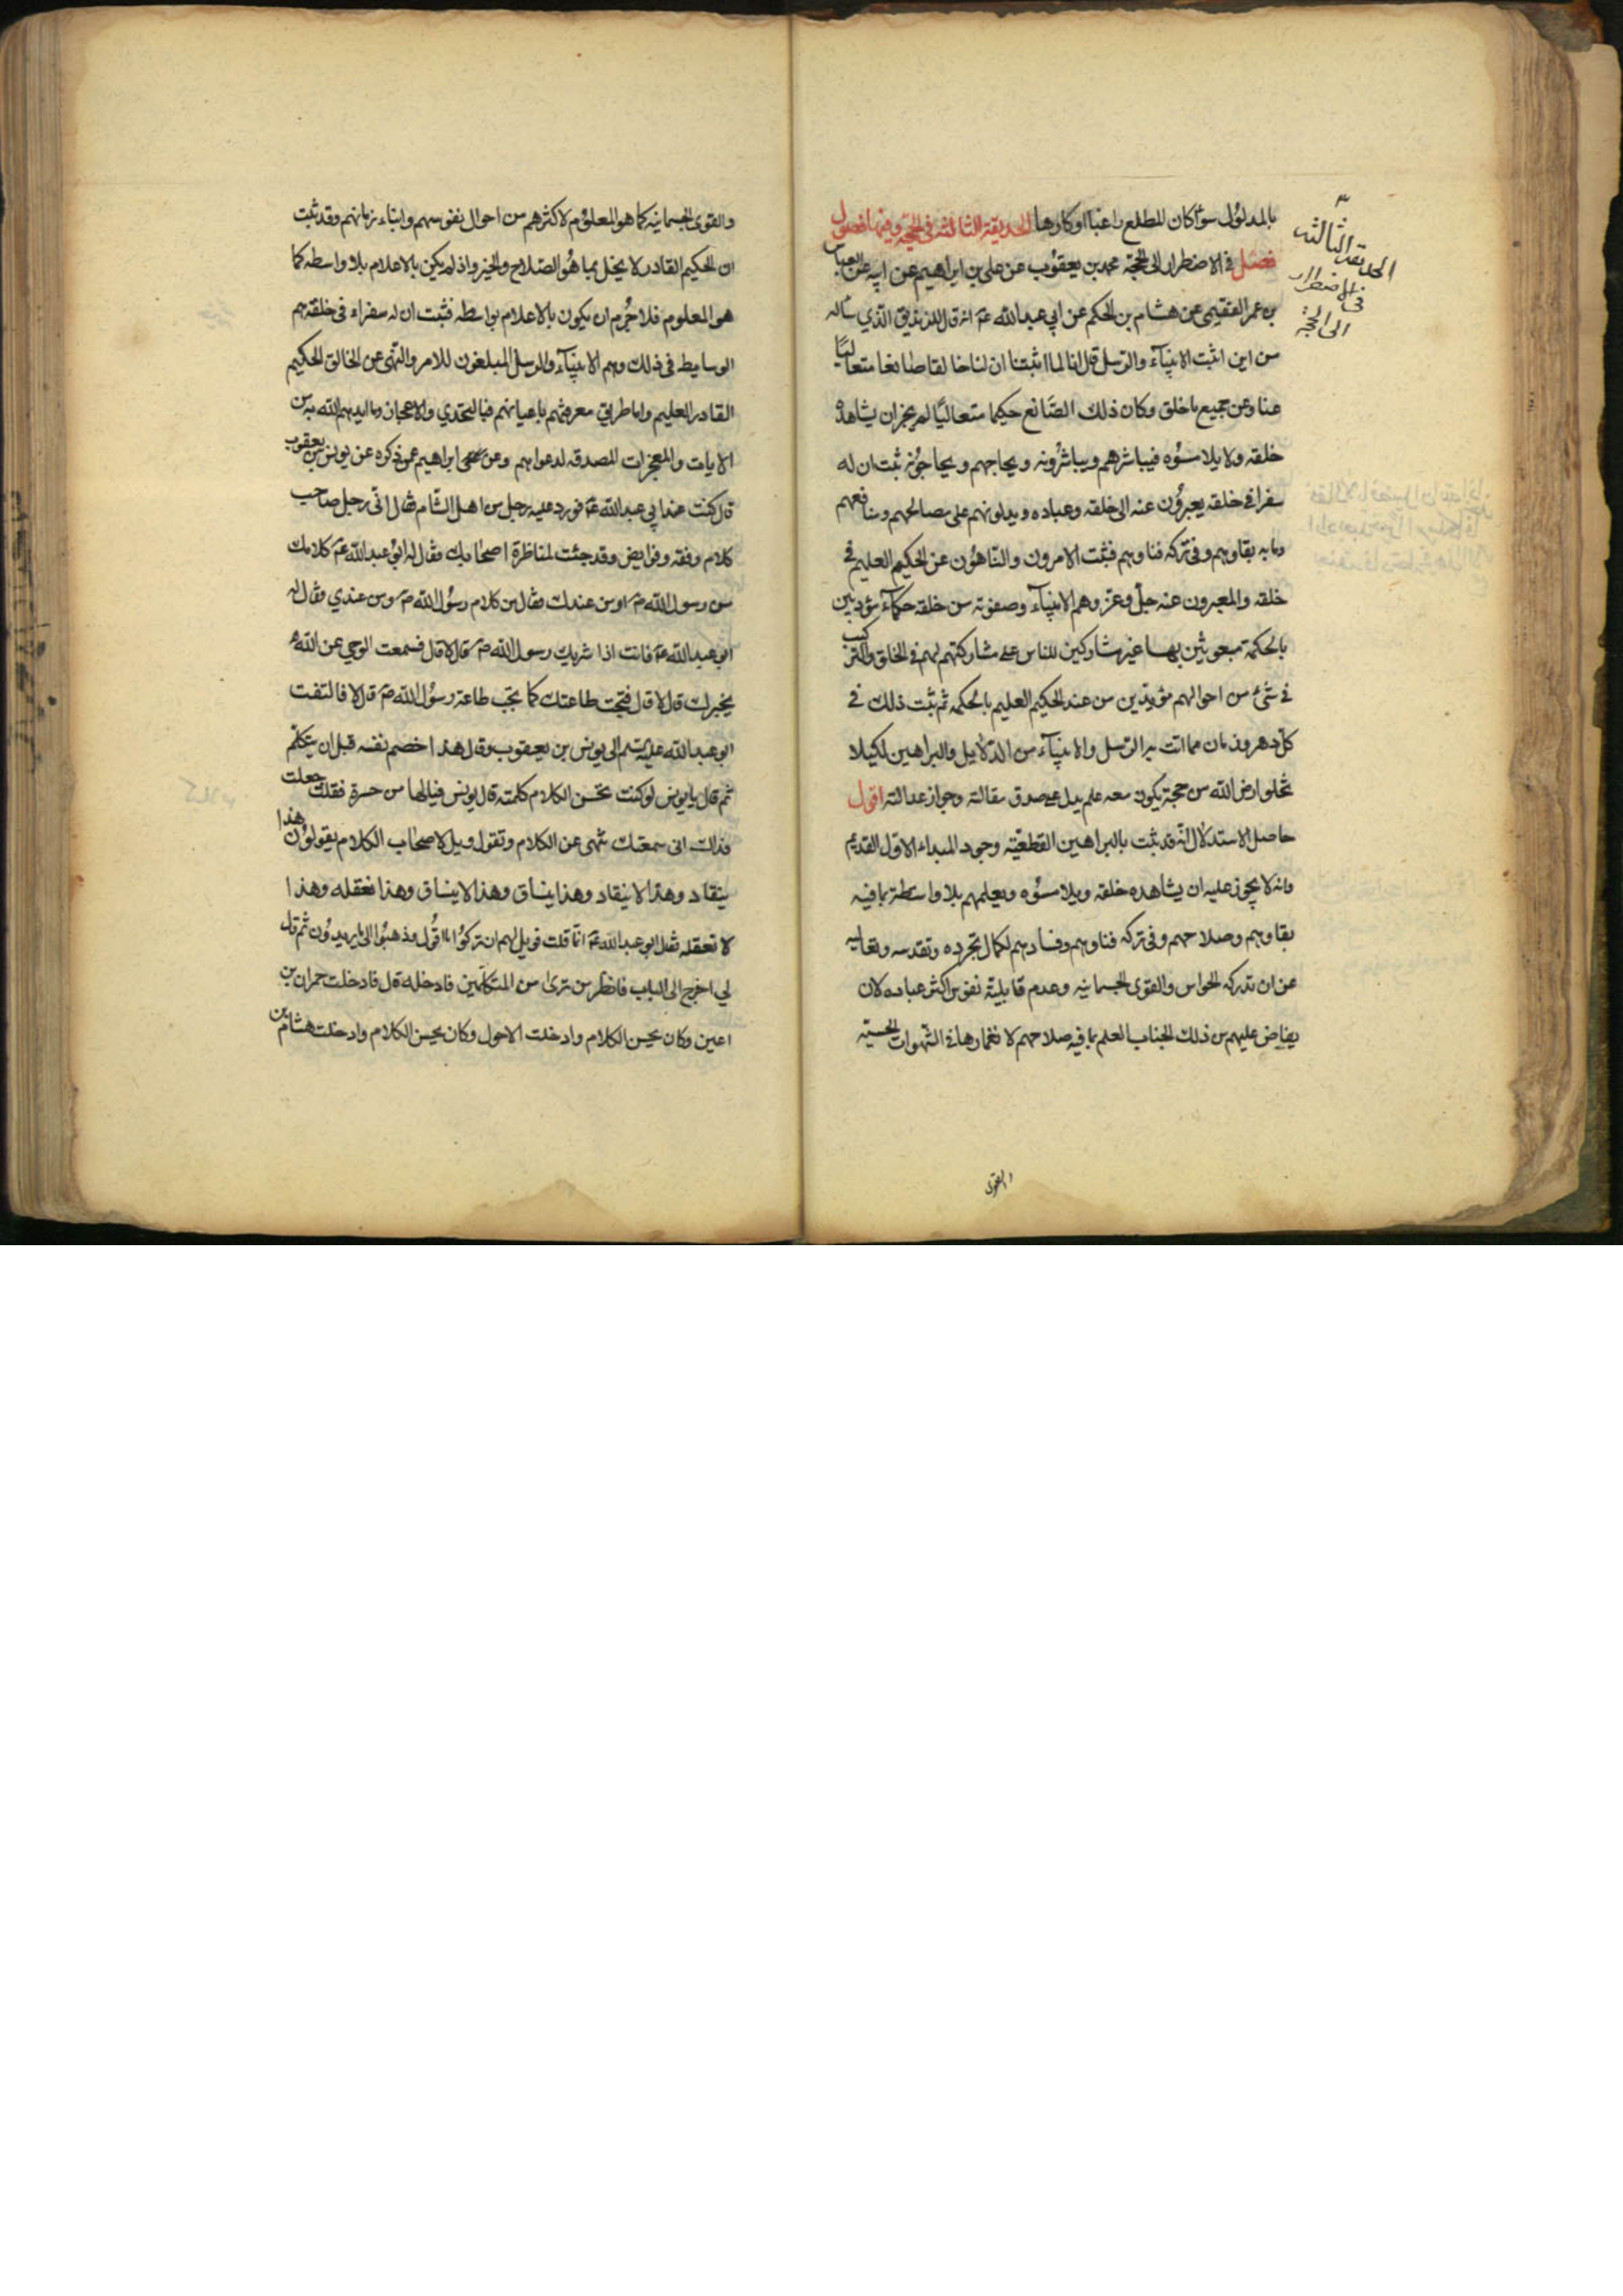 بالمدلول سواء كان للمطلع راغبا او كارها الحديقة الثالثة فى الحجة وفيها فصول
فصل فى الاضطرار الى الحجة محمد بن يعقوب عن على بن ابراهيم عن ابيه عن العباس
بن عمر الفقيمى عن هشام بن الحكم عن ابي عبدالله ع انه قال للزنديق الذي ساله
من اين اثبت الانبيآء والرسل قال انا لما اثبتنا ان لنا خالقا صانعا متعاليًا
عنا وعن جميع ما خلق وكان ذلك الصّانع حكيما متعاليًا لم يجز ان يشاهده
خلقه ولا يلامسوه فيباشرهم ويباشرونه ويحاجهم ويحاجونه ثبت ان له
سفرا فى خلقه يعبرون عنه الى خلقه وعباده ويدلونهم على مصالحهم ومنافعهم
وما به بقاوهم وفى تركه فناوهم فثبت الامرون والنّاهون عن الحكيم العليم فى
خلقه والمعبرون عنه جلّ وعز وهم الانبيآء وصفوته من خلقه حكمآء مؤدبين
بالحكمة مبعوثين بها غير مشاركين للناس على مشاركتهم لهم فى الخلق والتركيب
فى شئ من احوالهم مؤيدين من عند الحكيم العليم بالحكمة ثم ثبت ذلك فى
كلّ دهر وزمان مما اتت به الرّسل والانبيآء من الدّلايل والبراهين لكيلا
تخلو ارض الله من حجة يكون معه علم يدل على صدق مقالته وجواز عدالته اقول
حاصل الاستدلال انّه قد ثبت بالبراهين القطعيّة وجود المبداء الاول القديم
وانه لا يجوز عليه ان يشاهده خلقه ويلامسوه ويعلمهم بلا واسطة بما فيه
بقاوهم وصلاحهم وفى تركه فناوهم وفسادهم لكمال تجرده وتقدسه وتعاليه
عن ان تدركه الحواس والقوى الجسمانيه وعدم قابلية نفوس اكثر عباده لان
يفاض عليهم من ذلك الجناب العلم بما فيه صلاحهم لانغمارها فى الشّهوات الحسيّه
والقوى
الحديقة الثالثه
فى الاضطرار
الى الحجّة
والقوى الجسمانيه كما هو المعلوم لاكثرهم من احوال نفوسهم وابناء زمانهم وقد ثبت
ان الحكيم القادر لا يخل بما هو الصّلاح والخير واذ لم يكن بالاعلام بلا واسطه كما
هو المعلوم فلا جرم ان يكون بالاعلام بواسطه فثبت ان له سفراء فى خلقه هم
الوسايط فى ذلك وهم الانبيآء والرسل المبلغون للامر والنّهى عن الخالق الحكيم
القادر العليم واما طريق معرفتهم باعيانهم فبالتحدي والاعجاز وما ايدهم الله به من
الايات والمعجزات المصدقه لدعواهم وعن على بن ابراهيم عمن ذكره عن يونس بن يعقوب
قال كنت عند ابي عبدالله ع فورد عليه رجل من اهل الشّام فقال انّي رجل صاحب
كلام وفقه وفرايض وقد جئت لمناظرة اصحابك فقال له ابو عبدالله ع كلامك
من رسول الله ص او من عندك فقال من كلام رسول الله ص ومن عندي فقال له
ابو عبدالله ع فانت اذا شريك رسول الله ص قال لا قال فسمعت الوحي عن الله
يخبرك قال لا قال فتجب طاعتك كما تجب طاعة رسول الله ص قال لا فالتفت
ابو عبدالله عليه السلم الى يونس بن يعقوب وقال هذا خصم نفسه قبل ان يتكلم
ثم قال يا يونس لو كنت تحسن الكلام كلمته قال يونس فيالها من حسرة فقلت جعلت
فداك انى سمعتك تنهى عن الكلام وتقول ويل لاصحاب الكلام يقولون هذا
ينقاد وهذا لا ينقاد وهذا ينساق وهذا لا ينساق وهذا نعقله وهذا
لا نعقله فقال ابو عبدالله ع انّما قلت فويل لهم ان تركوا ما اقول وذهبوا الى ما يريدون ثم قال
لي اخرج الى الباب فانظر من ترى من المتكلّمين فادخله قال فادخلت حمران بن
اعين وكان يحسن الكلام وادخلت الاحول وكان يحسن الكلام وادخلت هشام بن